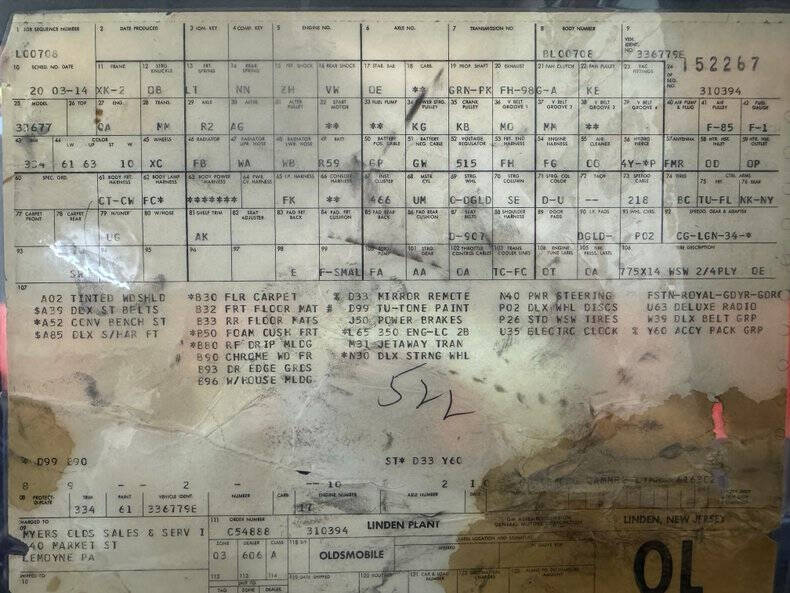 1 JOB SEQUENCE NUMBER 2 DATE PRODUCED 3 IGN. KEY 4 COMP. KEY 5 ENGINE NO. 6 AXLE NO. 7 TRANSMISSION NO 8 BODY NUMBER 9 VEH. IDENT. NO
L00708 BL00708 336779E
10 SCHED. NO. DATE 11 FRAME 12 STRG KNUCKLE 13 FRT. SPRING 14 REAR SPRING 15 FRT. SHOCK 16 REAR SHOCK 17 STAB. BAR 18 CARB. 19 PROP. SHAFT 20 EXHAUST 21 FAN CLUTCH 22 FAN PULLEY 23 VAC FITTINGS 24 152267
20 03-14 XK-2 OB LT NN ZH VW OE ** GRN-PK FH-98G-A KE 310394
25 MODEL 26 TOP 27 ENG. 28 TRANS 29 AXLE 32 START MOTOR 33 FUEL PUMP 34 POWER STRG. PULLEY 35 CRANK PULLEY 36 V BELT GROOVE 1 37 V BELT GROOVE 2 38 V BELT GROOVE 3 39 V BELT GROOVE 4 40 AIR PUMP & PLUG 41 FUEL TANK 42 FUEL GAUGE
33677 QA MM R2 AG ** ** KG KB MO MM ** F-85 F-1
44 COLOR 45 WHEELS 46 RADIATOR 47 RADIATOR UPR. HOSE 48 RADIATOR LWR. HOSE 49 BATT 50 BATTERY POS. CABLE 51 BATTERY NEG CABLE 52 VOLTAGE REGULATOR 53 FR. END HARNESS 54 ENGINE HARNESS 55 AIR CLEANER 57 ANTENNA
334 61 63 10 XC FB WA WB R59 GP GW 515 FH FG CO 4Y-*P FMR OD OP
60 SPEC. ORD. 61 BODY FRT. HARNESS 62 BODY LAMP HARNESS 63 BODY POWER HARNESS 65 I.P. HARNESS 66 CONSOLE HARNESS 67 INST. CLUSTER 68 MSTR CYL 69 STRG. WHL 70 STRG COLUMN 71 STRG. COL. 72 TMOP 73 SPEEDO CABLE 74 TIRES CTRL. ARMS
CT-CW FC* ******* FK ** 466 UM O-DGLD SE D-U -- 218 BC TU-FL NK-NY
77 CARPET FRONT 78 CARPET REAR 79 W/LINER 80 W/HOSE 81 SHELF TRIM 82 SEAT ADJUSTER 83 PAD FRT. BACK 84 PAD FRT. CUSHION 85 PAD REAR BACK 86 PAD REAR CUSHION 87 SEAT BELTS 88 SHOULDER HARNESS 89 DOOR PADS 90 I.P. PADS 91 WHL. CVRS. 92 SPEEDO. GEAR & ADAPTER
UG AK D-907 DGLD- PO2 CG-LGN-34-*
93 95 96 97 98 99 101 STRG. GEAR 102 THROTTLE CONTROL CABLE 103 TRANS COOLER LINES 104 ENGINE TUNE LABEL 105 TIRE PRESS. LABEL 106 TIRE DESCRIPTION
E F-SMAL FA AA OA TC-FC OT OA 775X14 WSW 2/4PLY OE
107
A02 TINTED WDSHLD *B30 FLR CARPET % D33 MIRROR REMOTE N40 PWR STEERING FSTN-ROYAL-GDYR-GDRC
$A39 DLX ST BELTS B32 FRT FLOOR MAT # D99 TU-TONE PAINT P02 DLX WHL DISCS U63 DELUXE RADIO
*A52 CCNV BENCH ST B33 RR FLOOR MATS J50 POWER BRAKES P26 STD WSW TIRES W39 DLX BELT GRP
$A85 DLX S/HAR FT *B50 FOAM CUSH FRT *L65 350 ENG-LC 2B U35 ELECTRC CLOCK % Y60 ACCY PACK GRP
*B80 RF DRIP MLDG M31 JETAWAY TRAN
B90 CHROME WD FR *N30 DLX STRNG WHL
B93 DR EDGE GRDS
B96 W/HOUSE MLDG
522
* D99 B90 ST* D33 Y60
8 9 -- - 2 - -- 10 2
08 PROTECT-O-PLATE TRIM PAINT VEHICLE IDENT. NUMBER CARB. ENGINE NUMBER AXLE NUMBER
334 61 336779E 17
CHARGED TO 111 ORDER NUMBER
09 MYERS OLDS SALES & SERV I C54888 310394 LINDEN PLANT LINDEN, NEW JERSEY
40 MARKET ST ZONE DEALER CLASS
LEMOYNE PA 03 606 A OLDSMOBILE OL
SHIPPED TO 112 113 114
10 119 DATE SHIPPED 120 ROUTING 121 CAR & LOAD NUMBER
TAG ZONE DEALER